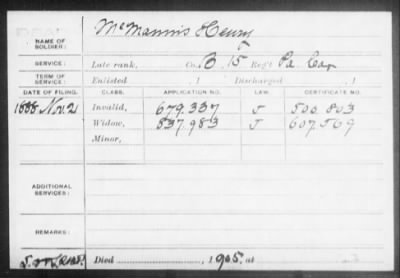 NAME OF SOLDIER: McMannis Henry
SERVICE: Late rank, Co. B, 15 Reg't Pa. Cav
TERM OF SERVICE: Enlisted , 1 Discharged , 1
DATE OF FILING. CLASS. APPLICATION NO. LAW. CERTIFICATE NO.
1888 Nov. 2 Invalid, 679.337 J 500.803
Widow, 837.983 J 607.569
Minor,
ADDITIONAL SERVICES:
REMARKS:
Died , 1905, at